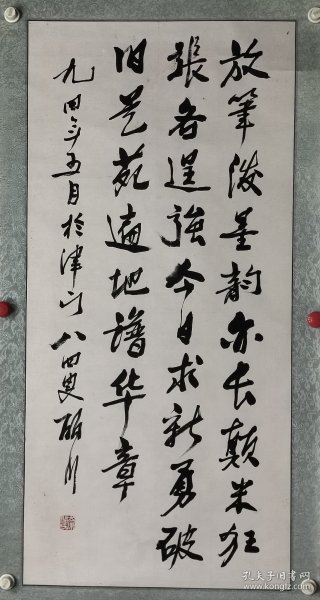 放筆潑墨韵亦长颠米狂
張各逞強今日求新勇破
旧艺苑遍地譜华章
九四年五月於津门八四叟
孔夫子旧书网
www.kongfz.com